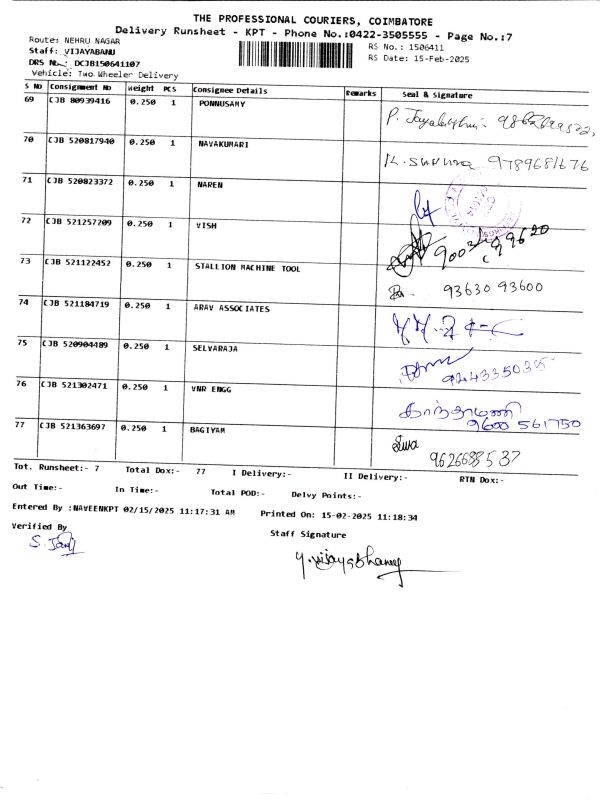 THE PROFESSIONAL COURIERS, COIMBATORE
Delivery Runsheet - KPT - Phone No.:0422-3505555 - Page No.:7
Route: NEHRU NAGAR RS No.: 1506411
Staff: VIJAYABANU RS Date: 15-Feb-2025
DRS No.: DCJB150641107
Vehicle: Two Wheeler Delivery
S No Consignment No Weight PCS Consignee Details Remarks Seal & Signature
69 CJB 80939416 0.250 1 PONNUSAMY
70 CJB 520817940 0.250 1 NAVAKUMARI 9789681676
71 CJB 520823372 0.250 1 NAREN
72 CJB 521257209 0.250 1 VISH
73 CJB 521122452 0.250 1 STALLION MACHINE TOOL 93630 93600
74 CJB 521184719 0.250 1 ARAV ASSOCIATES
75 CJB 520904489 0.250 1 SELVARAJA
76 CJB 521302471 0.250 1 VNR ENGG காந்தாமணி
9600 561750
77 CJB 521363697 0.250 1 BAGIYAM Siva
9626688537
Tot. Runsheet:- 7 Total Dox:- 77 I Delivery:- II Delivery:- RTN Dox:-
Out Time:- In Time:- Total POD:- Delvy Points:-
Entered By :NAVEENKPT 02/15/2025 11:17:31 AM Printed On: 15-02-2025 11:18:34
Verified By Staff Signature
Y. Vijayabhanu